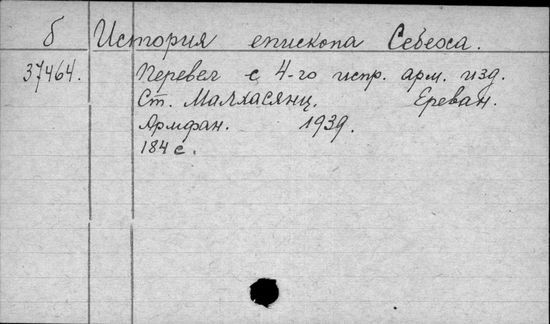 б История епископа Себеоса.
37464. Перевел с 4-го испр. арм. изд.
Ст. Малхасянц. Ереван.
Армфан. 1939.
184 с.